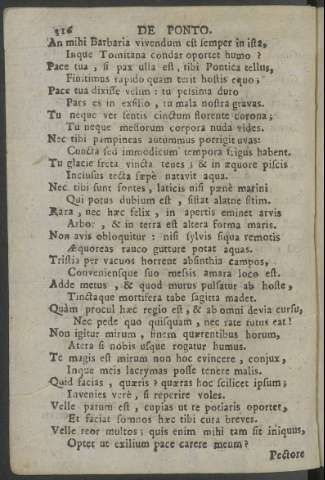 316 DE PONTO.
An mihi Barbaria vivendum est semper in ista,
Inque Tomitana condar oportet humo?
Pace tua, si pax ulla est, tibi Pontica tellus,
Finitimus rapido quam terit hostis equo;
Pace tua dixisse velim: tu pessima duro
Pars es in exsilio, tu mala nostra gravas.
Tu neque ver sentis cinctum florente corona;
Tu neque messorum corpora nuda vides.
Nec tibi pampineas autumnus porrigit uvas:
Cuncta sed immodicum tempora frigus habent.
Tu glacie freta vincta tenes; & in æquore piscis
Inclusus tecta sæpè natavit aqua.
Nec tibi sunt fontes, laticis nisi pænè marini
Qui potus dubium est, sistat alatne sitim.
Rara, nec hæc felix, in apertis eminet arvis
Arbor, & in terra est altera forma maris.
Non avis obloquitur: nisi sylvis siqua remotis
Æquoreas rauco gutture potat aquas.
Tristia per vacuos horrent absinthia campos,
Conveniensque suo messis amara loco est.
Adde metus, & quod murus pulsatur ab hoste,
Tinctaque mortifera tabe sagitta madet.
Quàm procul hæc regio est, & ab omni devia cursu,
Nec pede quo quisquam, nec rate tutus eat!
Non igitur mirum, finem quærentibus horum,
Altera si nobis usque rogatur humus.
Te magis est mirum non hoc evincere, conjux,
Inque meis lacrymas posse tenere malis.
Quid facias, quæris? quæras hoc scilicet ipsum;
Invenies verè, si reperire voles.
Velle parum est, cupias ut re potiaris oportet,
Et faciat somnos hæc tibi cura breves.
Velle reor multos; quis enim mihi tam sit iniquus,
Optet ut exilium pace carere meum?
Pectore